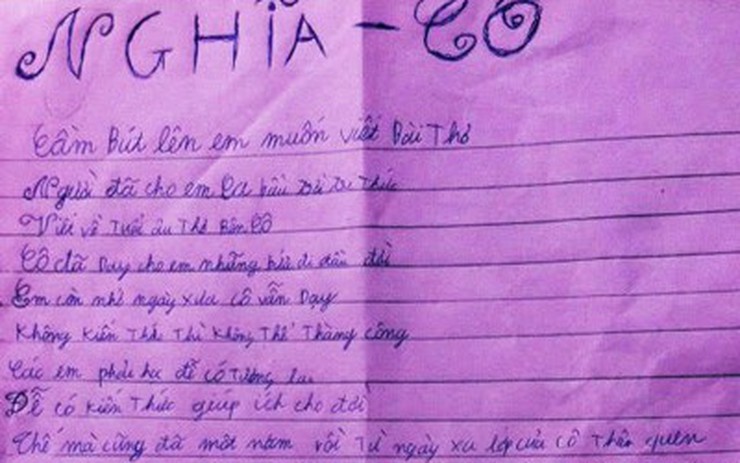 NGHĨA - CÔ
Cầm Bút lên em muốn viết Bài Thơ
Người đã cho em Cả bầu Trời Tri Thức
Viết về Tuổi ấu Thơ Bên Cô
Cô đã Dạy cho em những đầu đời
Em còn nhớ ngày xưa cô vẫn Dạy
Không kiến Thức Thì Không Thể Thàng công
Các em phải học để có Tương lai
Để có kiến Thức giúp ích cho đời
Thế mà cũng đã một năm rồi Từ ngày xa lớp của cô Thân quen